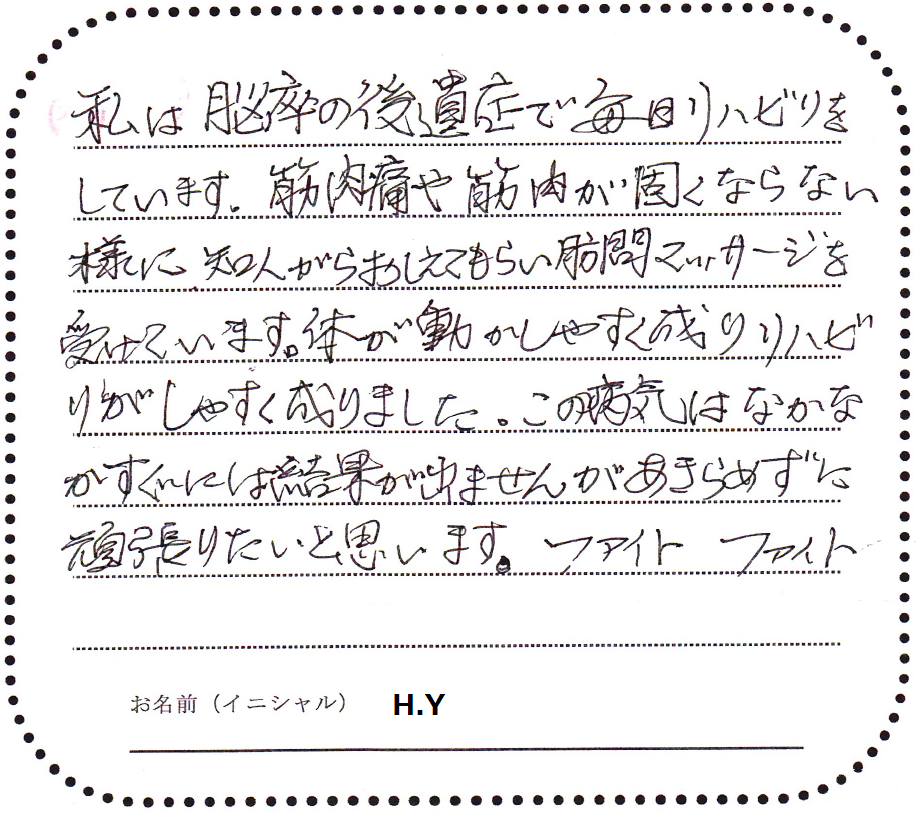 私は脳卒の後遺症で毎日リハビリを
しています。筋肉痛や筋肉が固くならない
様に知人がらおしえてもらい肪問マッサージを
受けています。体が動かしやすく成りリハビ
リがしやすく成りました。この病気はなかな
かすぐには結果が出ませんがあきらめずに
頑張りたいと思います。ファイト ファイト
お名前（イニシャル） H.Y